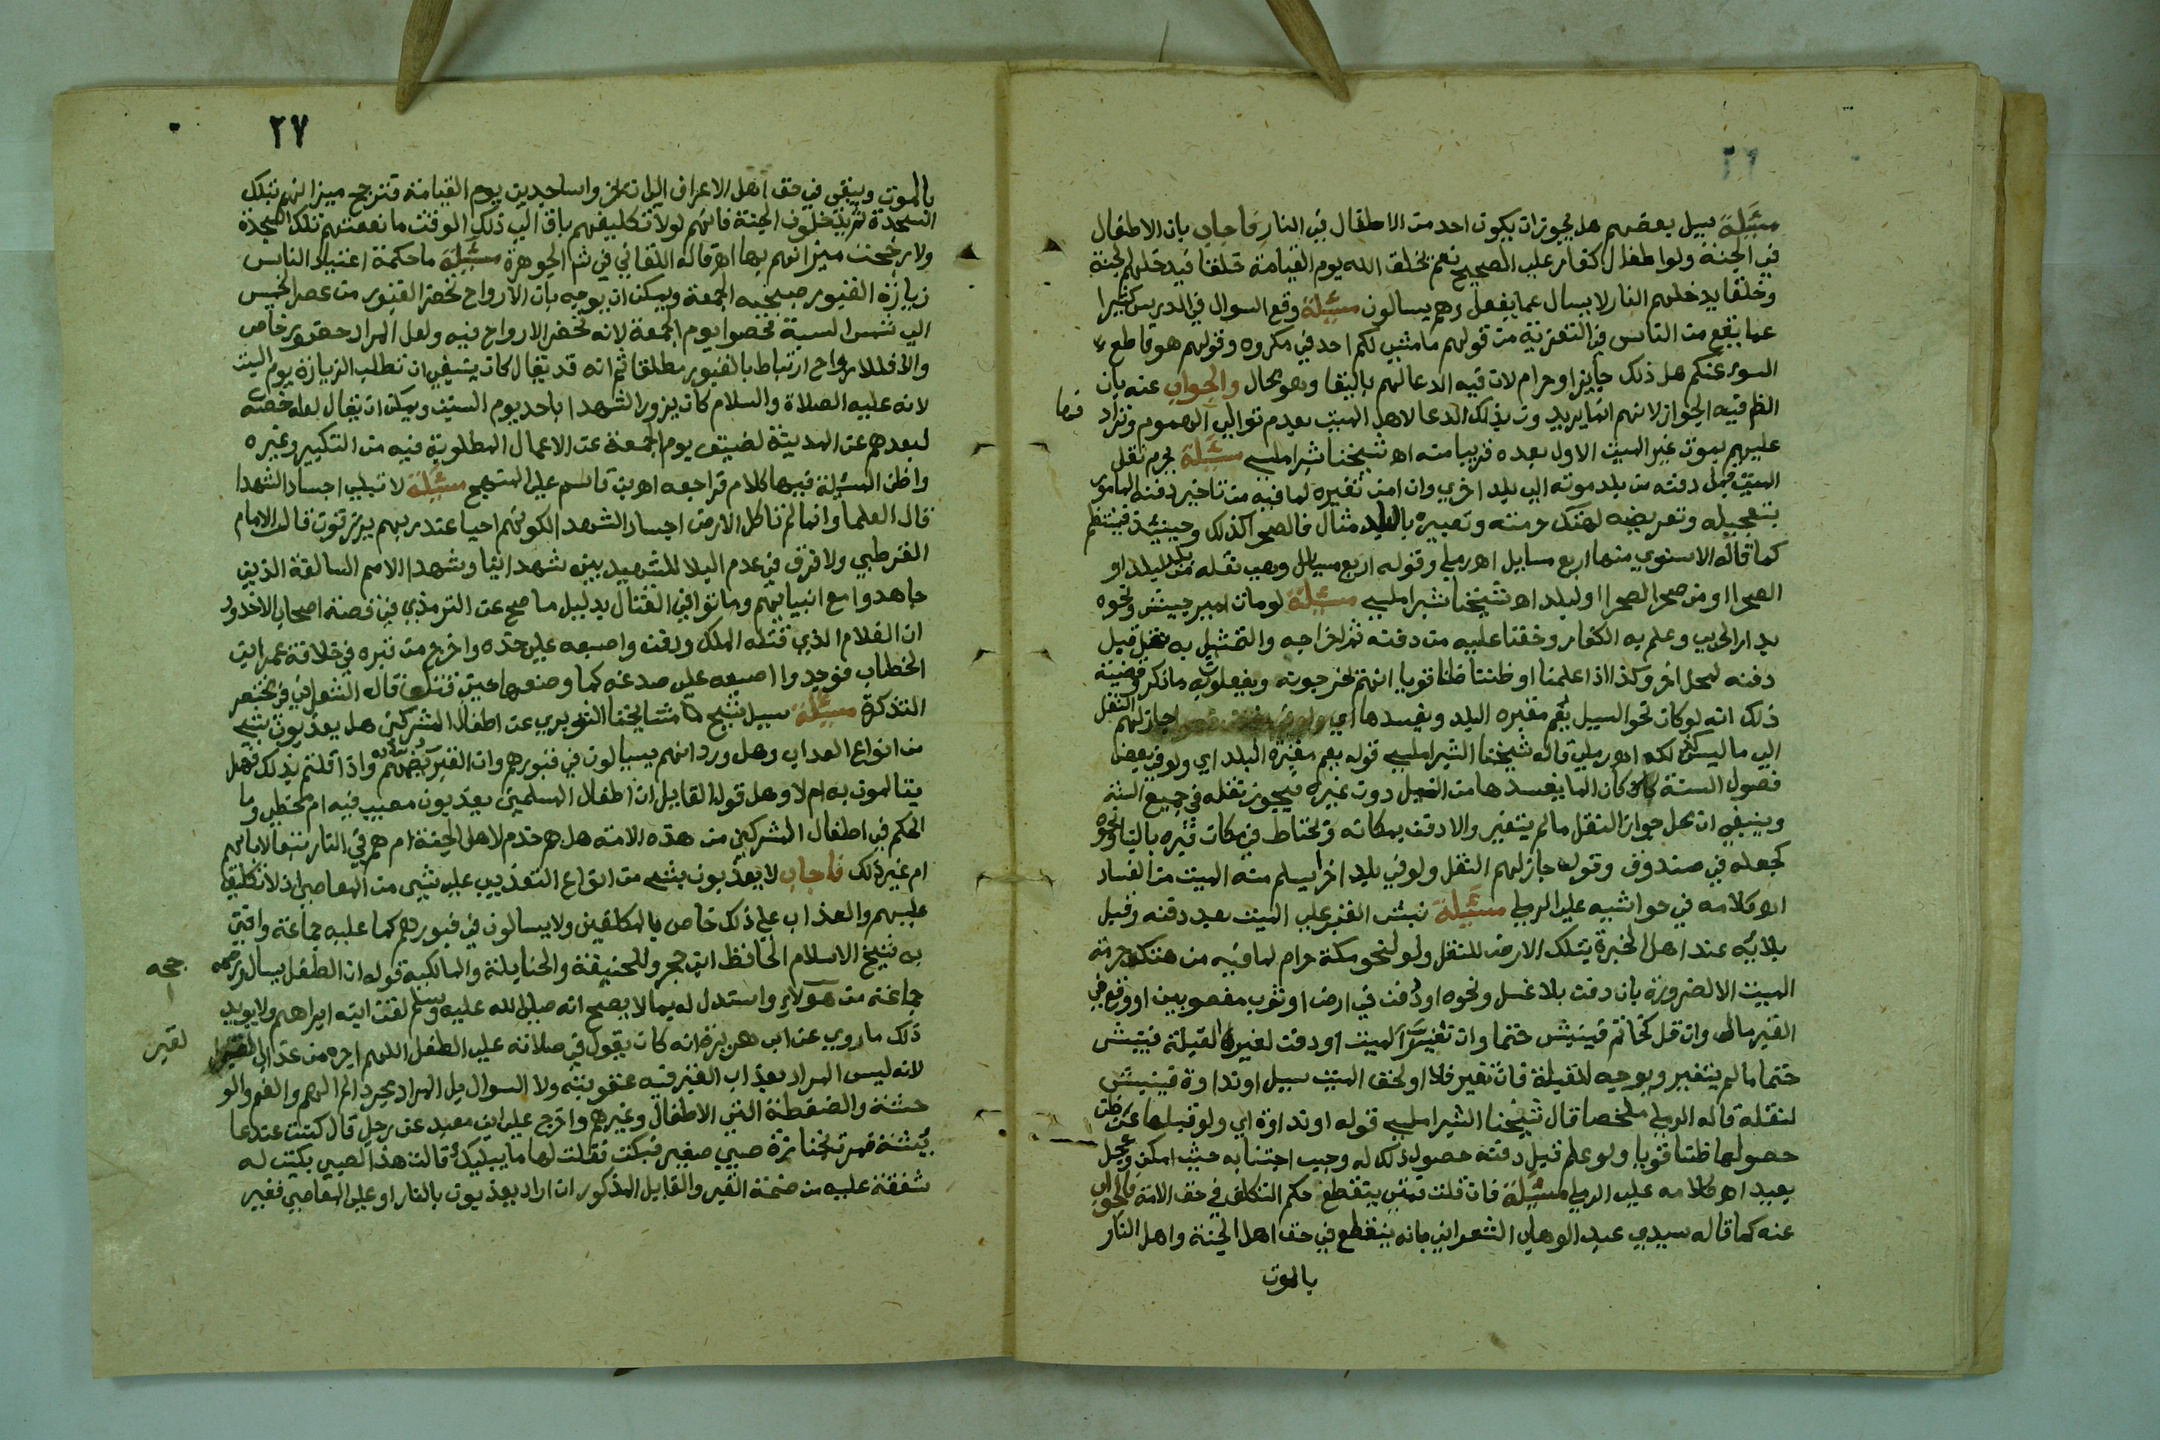 ٢٦
مسئلة سيل بعضهم هل يجوز ان يكون احد من الاطفال في النار فاجاب بان الاطفال
في الجنة ولو اطفال كفار على الصحيح نعم يخلق الله يوم القيامة خلقا فيدخلهم الجنة
وخلقا يدخلهم النار لا يسال عما يفعل وهم يسالون مسئلة وقع السوال في الدرس كثيرا
عما يقع من الناس في التعزية من قولهم ما مشي لكم احد في مكروه وقولهم هو قاطع
السوء عنكم هل ذلك جايز او حرام لان فيه الدعا لهم بالبقا وهو محال والجواب عنه بان
الظ فيه الجواز لانهم انما يريدون بذلك الدعا لاهل الميت بعدم توالي الهموم وترادفها
عليهم بموت غير الميت الاول بعده قريبا منه اه شيخنا شبراملسي مسئلة يحرم نقل
الميت قبل دفنه من بلد موته الى بلد اخرى وان امن تغيره لما فيه من تاخير دفنه المامور
بتعجيله وتعريضه لهتك حرمته وتعبيره بالبلد مثال فالصحرا كذلك وحينئذ فينتظم
كما قاله الاسنوي منها اربع مسايل اه رملي وقوله اربع مسايل وهي نقله من بلد لبلد او
الصحرا او من صحرا لصحرا او لبلد اه شيخنا شبراملسي مسئلة لو مات امير جيش ونحوه
بدار الحرب وعلم به الكفار وخفنا عليه من دفنه ثم اخراجه والتمثيل به نقل قبل
دفنه لمحل اخر وكذا اذا علمنا او ظننا ظنا قويا انهم يخرجونه ويفعلون به ما ذكر وقضية
ذلك انه لو كان نحو السيل يعم مقبرة البلد ويفسدها اي جاز لهم النقل
الى ما ليس كذلك اه رملي قال شيخنا الشبراملسي قوله يعم مقبرة البلد اي ولو في بعض
فصول السنة كان كان الما يفسدها من النيل دون غيره فيجوز نقله في جميع السنة
وينبغي ان محل جواز النقل ما لم يتغير والا دفن بمكانه ويحتاط في مكان قبره بالبنا ونحوه
كجعله في صندوق وقوله جاز لهم النقل ولو في بلد اخر يسلم منه الميت من الفساد
اه كلامه في حواشيه على الرملي مسئلة نبش القبر على الميت بعد دفنه وقبل
بلائه عند اهل الخبرة بتلك الارض للنقل ولو لنحو مكة حرام لما فيه من هتك حرمته
الميت الا لضرورة بان دفن بلا غسل ونحوه او دفن في ارض او ثوب مغصوبين او وقع في
القبر مال وان قل كخاتم فينبش حتما وان تغير الميت او دفن لغير القبلة فينبش
حتما ما لم يتغير ويوجه للقبلة فان تغير فلا او لحق الميت سيل او نداوة فينبش
لنقله قاله الرملي ملخصا قال شيخنا الشبراملسي قوله او نداوة اي ولو قبلها عن ظن
حصولها ظنا قويا ولو علم قبل دفنه حصول ذلك له وجب اجتنابه حيث امكن ومحل
بعيد اه كلامه على الرملي مسئلة فان قلت فمتى ينقطع حكم التكليف في حق الامة فالجواب
عنه كما قاله سيدي عبد الوهاب الشعراني بانه ينقطع في حق اهل الجنة واهل النار
بالموت
٢٧
بالموت ويبقى في حق اهل الاعراف الى ان يخروا ساجدين يوم القيامة فترجح ميزانهم بتلك
السجدة ثم يدخلون الجنة فانهم لولا تكليفهم باق الى ذلك الوقت ما نفعتهم تلك السجدة
ولا رجحت ميزانهم بها اه قاله اللقاني في شرح الجوهرة مسئلة ما حكمة اعتياد الناس
زيارة القبور صبيحة الجمعة ويمكن ان يوجه بان الارواح تحضر القبور من عصر الخميس
الى شمس السبت فخصوا يوم الجمعة لانه تحضر الارواح فيه ولعل المراد حضور خاص
والا فللارواح ارتباط بالقبور مطلقا ثم انه قد يقال كان ينبغي ان تطلب الزيارة يوم السبت
لانه عليه الصلاة والسلام كان يزور الشهدا باحد يوم السبت ويمكن ان يقال لعله خصه
لبعدهم عن المدينة لضيق يوم الجمعة عن الاعمال المطلوبة فيه من التكبير وغيره
واظن المسئلة فيها كلام فراجعه اه بن قاسم على المنهج مسئلة لا تبلى اجساد الشهدا
قال العلما وانما لم تاكل الارض اجساد الشهدا لكونهم احيا عند ربهم يرزقون قال الامام
القرطبي ولا فرق في عدم البلا للشهيد بين شهدائنا وشهدا الامم السالفة الذين
جاهدوا مع انبيائهم وماتوا في القتال بدليل ما صح عن الترمذي في قصة اصحاب الاخدود
ان الغلام الذي قتله الملك ودفن واصبعه على خده واخرج من قبره في خلافة عمر ابن
الخطاب فوجدوا اصبعه على صدغه كما وضعها حين قتل قال الشعراني في مختصر
التذكرة مسئلة سيل شيخ مشايخنا الشوبري عن اطفال المشركين هل يعذبون بشي
من انواع العذاب وهل ورد انهم يسيالون في قبورهم وان القبر يضمهم واذا قلتم بذلك فهل
يتالمون به ام لا وهل قول القايل ان اطفال المسلمين يعذبون مصيب فيه ام مخطي وما
الحكم في اطفال المشركين من هذه الامة هل هم خدم لاهل الجنة ام هم في النار تبعا لابائهم
ام غير ذلك فاجاب لا يعذبون بشي من انواع التعذيب على شي من المعاصي اذ لا تكليف
عليهم والعذاب على ذلك خاص بالمكلفين ولا يسالون في قبورهم كما عليه جماعة وافتى
به شيخ الاسلام الحافظ ابن حجر وللحنيفة والحنابلة والمالكية قول ان الطفل يسال ورجحه
جماعة من هولاء واستدل له بما لا يصح انه صلى الله عليه وسلم لقن ابنه ابراهيم ولا يويد
ذلك ما روي عن ابي هريرة انه كان يقول في صلاته على الطفل اللهم اجره من عذاب القبر
لانه ليس المراد بعذاب القبر فيه عقوبته ولا السوال بل المراد مجرد الم الهم والغم والو
حشة والضغطة التي الاطفال وغيرهم واخرج علي ابن معبد عن رجل قال كنت عند عا
ئيشة فمرت بجنازة صبي صغير فبكت فقلت لها ما يبكيك قالت هذا الصبي بكيت له
شفقة عليه من ضمة القبر والقايل المذكور ان اراد يعذبون بالنار او على المعاصي فغير